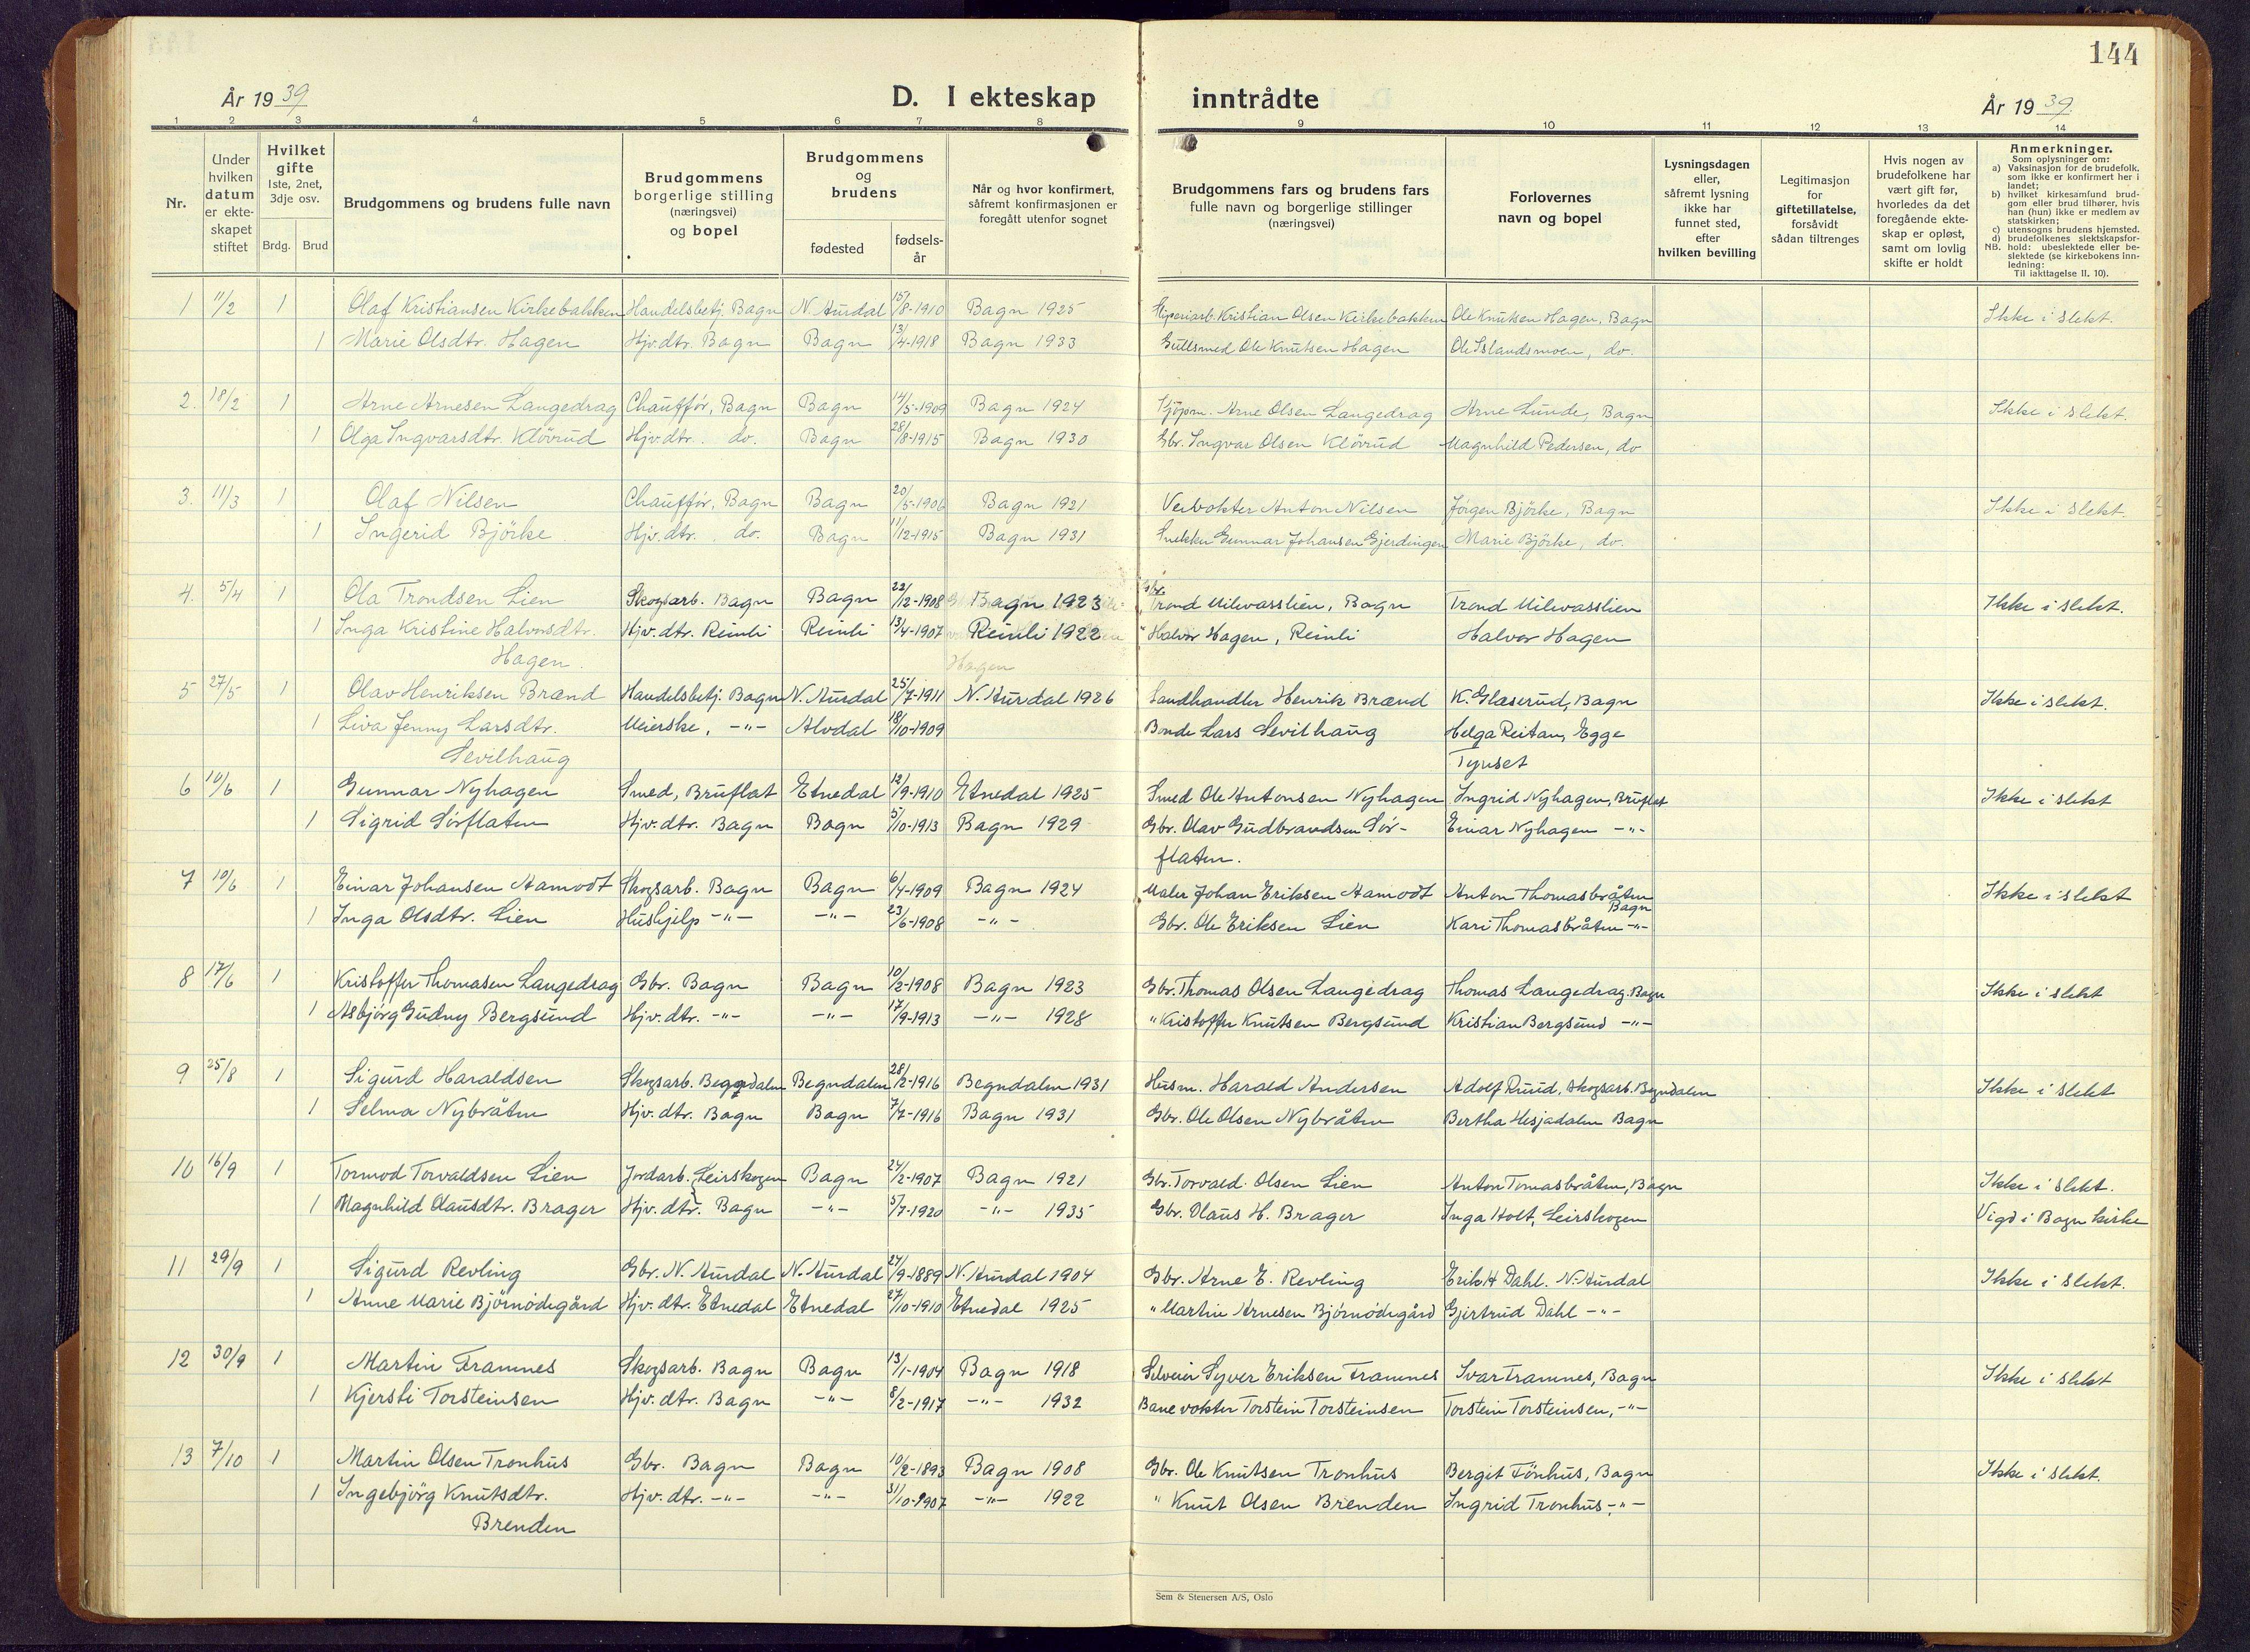 144
År 19 39
D. I ekteskap inntrådte
År 19 39
1 2 3 4 5 6 7 8 9 10 11 12 13 14
Nr.
Under hvilken datum er ekte-skapet stiftet
Hvilket gifte 1ste, 2net, 3dje osv.
Brdg. Brud
Brudgommens og brudens fulle navn
Brudgommens borgerlige stilling (næringsvei) og bopel
Brudgommens og brudens
fødested
fødsels-år
Når og hvor konfirmert, såfremt konfirmasjonen er foregått utenfor sognet
Brudgommens fars og brudens fars fulle navn og borgerlige stillinger (næringsvei)
Forlovernes navn og bopel
Lysningsdagen eller, såfremt lysning ikke har funnet sted, efter hvilken bevilling
Legitimasjon for giftetillatelse, forsåvidt sådan tiltrenges
Hvis nogen av brudefolkene har vært gift før, hvorledes da det foregående ekte-skap er opløst, samt om lovlig skifte er holdt
Anmerkninger.
Som oplysninger om:
a) Vaksinasjon for de brudefolk, som ikke er konfirmert her i landet;
b) hvilket kirkesamfund brud-gom eller brud tilhører, hvis han (hun) ikke er medlem av statskirken;
c) utensogns brudens hjemsted.
d) brudefolkenes slektskapsfor-
NB. hold: ubeslektede eller be-slektede (se kirkebokens inn-ledning:
Til iakttagelse II. 10).
1 11/2 1 Olaf Kristiansen Kirkebakken Handelsbetj. Bagn N. Aurdal 15/8-1910 Bagn 1925 Kristian Olsen Kirkebakken Ole Knutsen Hagen, Bagn Ikke i slekt.
1 Marie Olsdtr. Hagen Hjv. dtr. Bagn Bagn 13/4-1918 Bagn 1933 Gullsmed Ole Knutsen Hagen Ole Islandsmoen, do.
2. 18/2 1 Arne Arnesen Langedrag Chauffør, Bagn Bagn 14/5-1909 Bagn 1924 Kjøpm. Arne Olsen Langedrag Arne Lunde, Bagn Ikke i slekt.
1 Olga Ingvarsdtr. Klövrud Hjv. dtr. do. Bagn 28/8-1915 Bagn 1930 Gbr. Ingvar Olsen Klövrud Magnhild Pedersen, do
3. 11/3 1 Olaf Nilsen Chauffør, Bagn Bagn 20/5-1906 Bagn 1921 Veivokter Anton Nilsen Jørgen Björke, Bagn Ikke i slekt.
1 Ingerid Björke Hjv. dtr. do. Bagn 11/12-1915 Bagn 1931 Snekker Gunnar Johansen Gjerdingen Marie Björke, do.
4. 5/4 1 Ola Trondsen Lien Skogsarb. Bagn Bagn 22/12-1908 Bagn 1923 Gbr. Trond Milevasslien, Bagn Trond Milevasslien Ikke i slekt.
1 Inga Kristine Halvorsdtr. Hjv. dtr. Reinli Reinli 13/4-1907 Reinli 1922 " Halvor Hagen, Reinli Halvor Hagen
Hagen. Hagen
5 27/5 1 Olav Henriksen Brænd Handelsbetj. Bagn N. Aurdal 25/7-1911 N. Aurdal 1926 Landhandler Henrik Brænd K. Glaserud, Bagn Ikke i slekt.
1 Liva Jenny Larsdtr. Meierske, -"- Alvdal 18/10-1909 Bonde Lars Sevilhaug Helga Reitan, Egge
Sevilhaug Tynset
6 10/6 1 Gunnar Nyhagen Smed, Bruflat Etnedal 12/9-1910 Etnedal 1925 Smed Ole Antonsen Nyhagen Ingrid Nyhagen, Bruflat Ikke i slekt
1 Sigrid Sørflaten Hjv. dtr. Bagn Bagn 5/10-1913 Bagn 1929 Gbr. Olav Gudbrandsen Sør- Einar Nyhagen -"-
flaten.
7 10/6 1 Einar Johansen Aamodt Skogsarb. Bagn Bagn 6/4-1909 Bagn 1924 Maler Johan Eriksen Aamodt Anton Thomasbråten Bagn Ikke i slekt
1 Inga Olsdtr. Lien Hushjelp -"- -"- 23/6-1908 -"- Gbr. Ole Eriksen Lien Kari Thomasbråten -"-
8 17/6 1 Kristoffer Thomasen Langedrag Gbr. Bagn Bagn 10/2-1908 Bagn 1923 Gbr. Thomas Olsen Langedrag Thomas Langedrag, Bagn Ikke i slekt
1 Asbjörg Gudny Bergsund Hjv. dtr. -"- -"- 17/9-1913 -"- 1928 " Kristoffer Knutsen Bergsund Kristian Bergsund -"-
9 25/8 1 Sigurd Haraldsen Skogsarb. Begndalen Begndalen 28/2-1916 Begndalen 1931 Husm. Harald Andersen Adolf Ruud, skogsarb. Begndalen Ikke i slekt
1 Selma Nybråten Hjv. dtr. Bagn Bagn 7/7-1916 Bagn 1931 Gbr. Ole Olsen Nybråten Bertha Hesjadalen Bagn
10 16/9 1 Tormod Torvaldsen Lien Jordarb. Leirskogen Bagn 24/2-1907 Bagn 1921 Gbr. Torvald Olsen Lien Anton Tomasbråten, Bagn Ikke i slekt.
1 Magnhild Olausdtr. Brager Hjv. dtr. Bagn -"- 5/7-1920 -"- 1935 Gbr. Olaus H. Brager Inga Holt, Leirskogen Vigd i Bagn kirke
11 29/9 1 Sigurd Revling Gbr. N. Aurdal N. Aurdal 24/9-1889 N. Aurdal 1904 Gbr. Arne E. Revling Erik H Dahl. N. Aurdal Ikke i slekt.
1 Anne Marie Björnödegård Hjv. dtr. Etnedal Etnedal 27/10-1910 Etnedal 1925 " Martin Arnesen Björnödegård Gjertrud Dahl -"-
12 30/9 1 Martin Framnes Skogsarb. Bagn Bagn 13/1-1904 Bagn 1918 Selveier Syver Eriksen Framnes Ivar Framnes, Bagn Ikke i slekt
1 Kjersti Torsteinsen Hjv. dtr. Bagn -"- 8/2-1917 -"- 1932 Banevokter Torstein Torsteinsen Torstein Torsteinsen, -"-
13 7/10 1 Martin Olsen Tronhus Gbr. Bagn Bagn 10/2-1893 Bagn 1908 Gbr. Ole Knutsen Tronhus Bergit Fönhus, Bagn Ikke i slekt.
1 Ingebjörg Knutsdtr. Hjv. dtr. -"- -"- 31/10-1907 -"- 1922 " Knut Olsen Brenden Ingrid Tronhus, -"-
Brenden
Sem & Stenersen A/S, Oslo